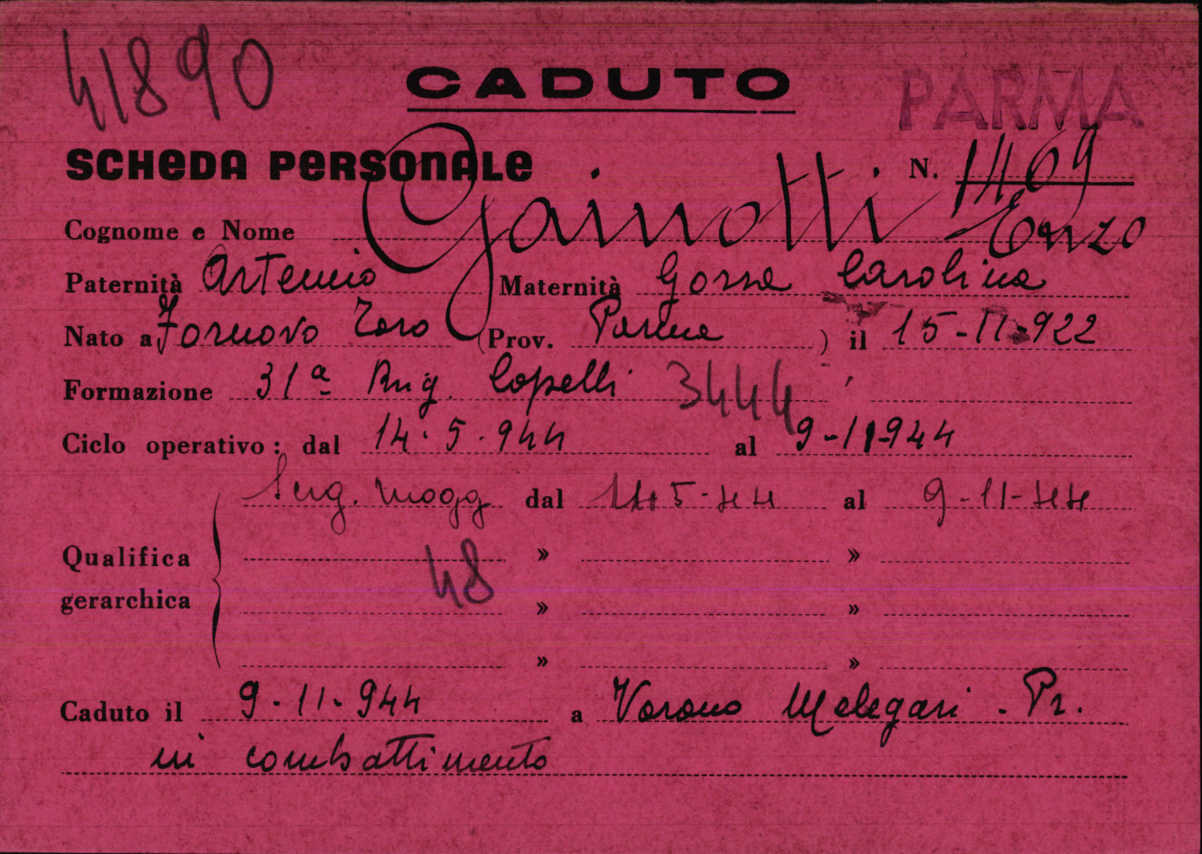 41890
CADUTO
PARMA
SCHEDA PERSONALE N. 1469
Cognome e Nome Gainotti Enzo
Paternità Artemio Maternità Carolina
Nato a Fornovo Taro (Prov. Parma ) il 15-11-922
Formazione 31ª Brig. Copelli 3444
Ciclo operativo: dal 14.5.944 al 9-11-944
Qualifica gerarchica
Serg. magg dal 14.5-44 al 9-11-44
» »
48
» »
» »
Caduto il 9-11-944 a Varano Melegari - Pr.
in combattimento